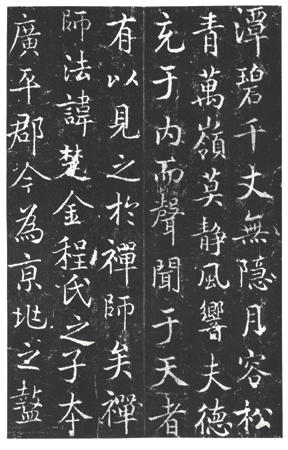 潭碧千丈無隐月容松
青萬嶺莫静風響夫德
充于内而聲聞于天者
有以見之於禪師矣禪
師法諱楚金程氏之子本
廣平郡今為京地之盩